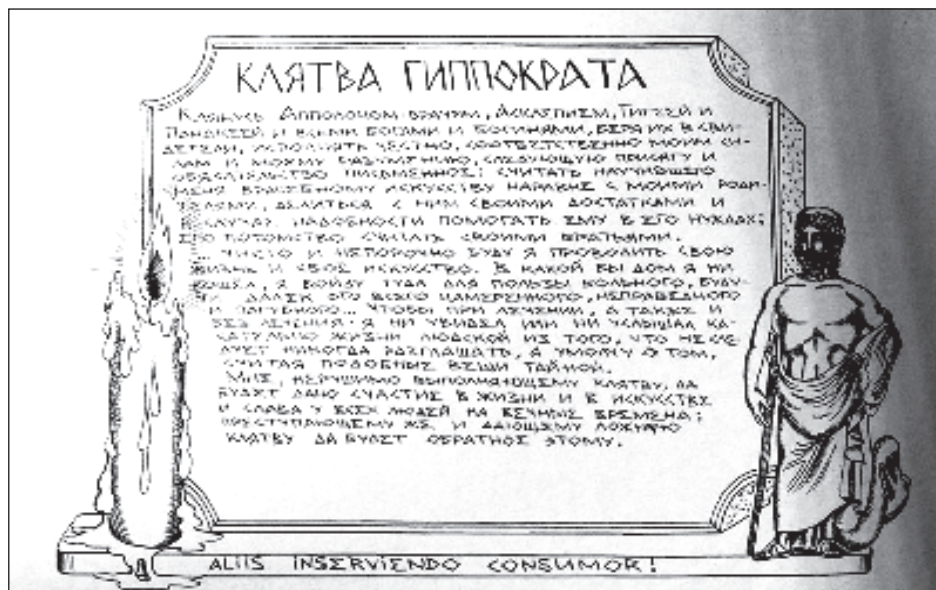 КЛЯТВА ГИППОКРАТА
Клянусь Апполоном врачом, Асклепием, Гигеей и
Панакеей и всеми богами и богинями, беря их в сви-
детели, исполнять честно, соответственно моим си-
лам и моему разумению, следующую присягу и
обязательство письменное: считать научившего
меня врачебному искусству наравне с моими роди-
телями, делиться с ним своими достатками и
в случае надобности помогать ему в его нуждах;
его потомство считать своими братьями.
...Чисто и непорочно буду я проводить свою
жизнь и своё искусство. В какой бы дом я ни
вошел, я войду туда для пользы больного, буду-
чи далек ото всего намеренного, неправедного
и пагубного... Чтобы при лечении, а также и
без лечения я ни увидел или ни услышал ка-
сательно жизни людской из того, что не сле-
дует никогда разглашать, я умолчу о том,
считая подобные вещи тайной.
Мне, нерушимо выполняющему клятву, да
будет дано счастие в жизни и в искусстве
и слава у всех людей на вечные времена;
преступающему же и дающему ложную
клятву да будет обратное этому.
ALIIS INSERVIENDO CONSUMOR!